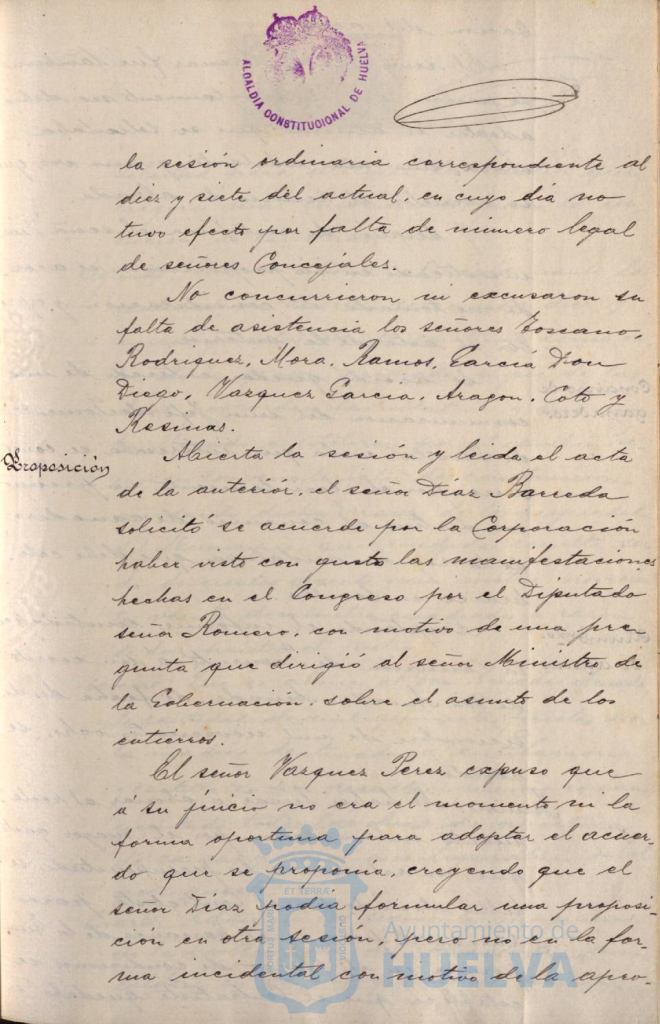 ALCALDIA CONSTITUCIONAL DE HUELVA
la sesión ordinaria correspondiente al
diez y siete del actual, en cuyo dia no
tuvo efecto por falta de número legal
de señores Concejales.
No concurrieron ni excusaron su
falta de asistencia los señores Toscano,
Rodriguez, Mora, Ramos, García Don
Diego, Vazquez Garcia, Aragon, Coto y
Resinas.
Proposición
Abierta la sesión y leida el acta
de la anteriór, el señor Diaz Barreda
solicitó se acuerde por la Corporación
haber visto con gusto las manifestaciones
hechas en el Congreso por el Diputado
señor Romero, con motivo de una pre-
gunta que dirigió al señor Ministro de
la Gobernación, sobre el asunto de los
entierros.
El señor Vazquez Perez expuso que
á su juicio no era el momento ni la
forma oportuna para adoptar el acuer-
do que se proponia, creyendo que el
señor Diaz podia formular una proposi-
ción en otra sesión, pero no en la for-
ma incidental con motivo de la apro-
ET TERRÆ
PORTUS MARIS
CUSTODIA
Ayuntamiento de
HUELVA